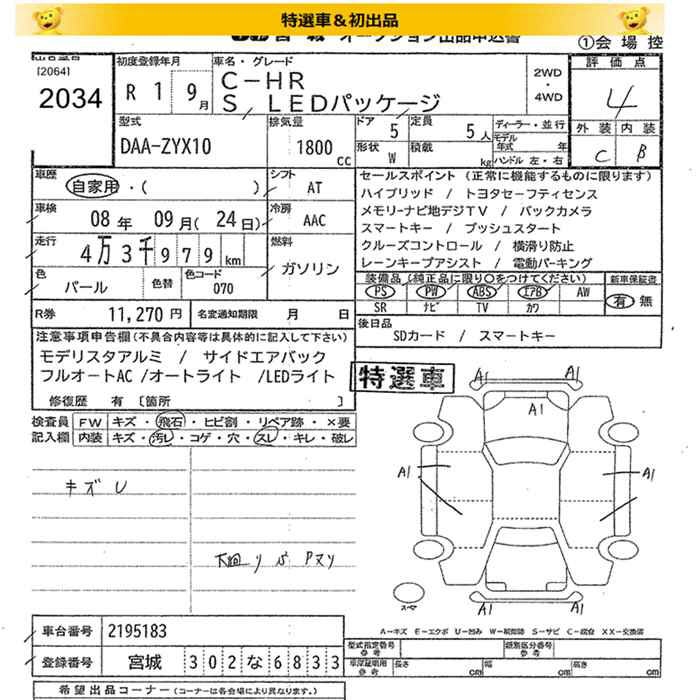 特選車&初出品
オークション出品申込書
①会場控
[2064]
2034
初度登録年月
R 1 9月
車名・グレード
C-HR
S LEDパッケージ
2WD
・
4WD
評価点
4
外装 内装
C B
型式
DAA-ZYX10
排気量
1800 cc
ドア 5
定員 5人
ディーラー・並行
モデル
年式 年
形状 W
積載 kg
ハンドル 左・右
車歴
自家用・( )
シフト
AT
車検
08年 09月(24日)
冷房
AAC
走行
4万3千979km
燃料
ガソリン
色
パール
色替
色コード
070
R券 11,270円
名変通知期限 月 日
セールスポイント (正常に機能するものに限ります)
ハイブリッド / トヨタセーフティセンス
メモリーナビ地デジTV / バックカメラ
スマートキー / プッシュスタート
クルーズコントロール / 横滑り防止
レーンキープアシスト / 電動パーキング
装備品(純正品に限り○をつけてください)
新車保証書
PS PW ABS エアB AW
SR ナビ TV カワ
有 無
後日品
SDカード / スマートキー
注意事項申告欄(不具合内容等は具体的に記入して下さい)
モデリスタアルミ / サイドエアバック
フルオートAC /オートライト /LEDライト
修復歴 有 〔箇所 〕
特選車
検査員
記入欄
FW キズ・飛石・ヒビ割・リペア跡・×要
内装 キズ・汚レ・コゲ・穴・スレ・キレ・破レ
キズU
下廻りサビPヌリ
A1 A1
A1
A1 A1
A1 A1
スペア
A-キズ E-エクボ U-凹み W-補修跡 S-サビ C-腐食 XX-交換済
車台番号 2195183
登録番号 宮城 302な6833
型式指定番号
参考
類別区分番号
参考
車庫証明用
参考
長さ cm
幅 cm
高さ cm
希望出品コーナー(コーナーは各会場により異なります。)